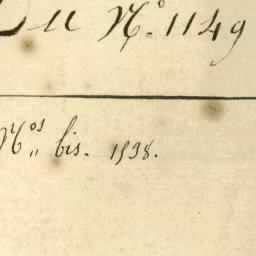 Du Nº. 1149
Nos „ bis. 1538.